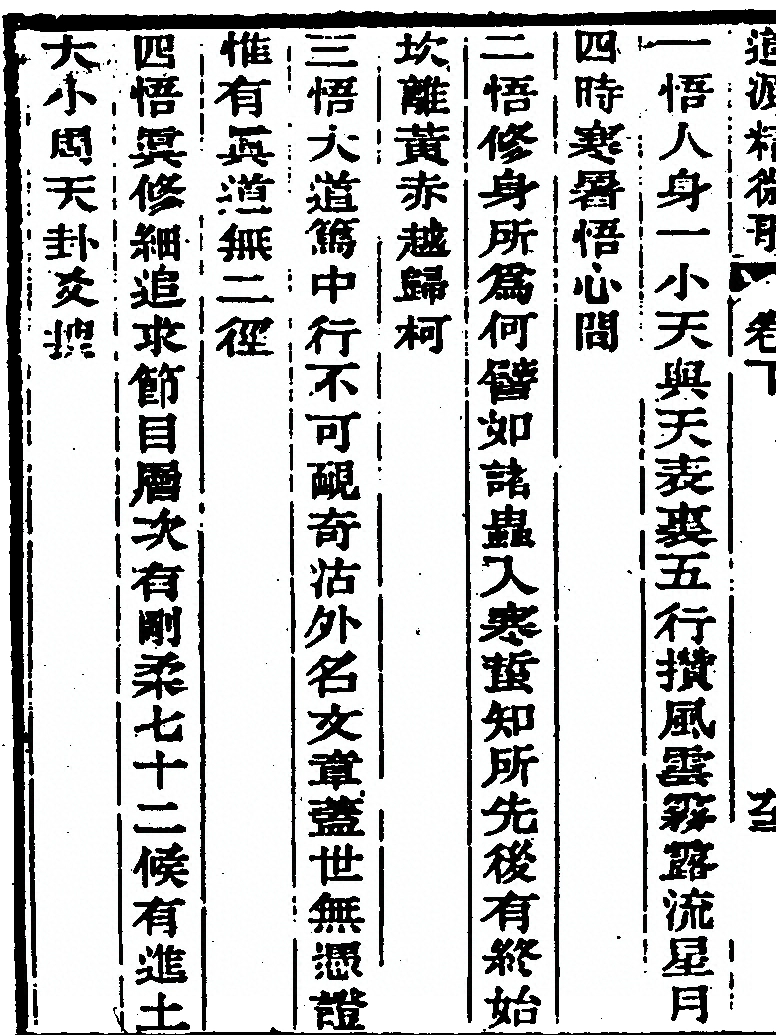 道源精微歌 卷下
一悟人身一小天與天表裏五行攢風雲霧露流星月
四時寒暑悟心間
二悟修身所爲何譬如諸蟲入寒蜇知所先後有終始
坎離黃赤越歸柯
三悟大道篤中行不可覷奇沽外名文章蓋世無憑證
惟有眞道無二徑
四悟眞修細追求節目層次有剛柔七十二候有進土
大小周天卦爻搜